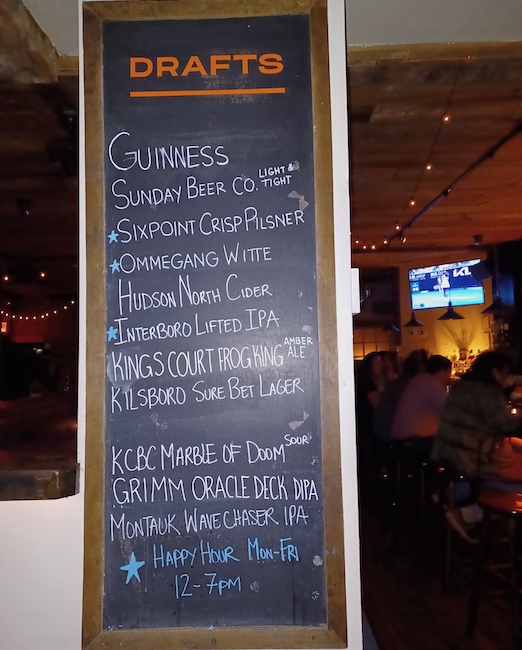 DRAFTS
GUINNESS
SUNDAY BEER CO. LIGHT & TIGHT
★SIXPOINT CRISP PILSNER
★OMMEGANG WITTE
HUDSON NORTH CIDER
★INTERBORO LIFTED IPA
KINGS COURT FROG KING AMBER ALE
KILSBORO SURE BET LAGER
KCBC MARBLE OF DOOM SOUR
GRIMM ORACLE DECK DIPA
MONTAUK WAVE CHASER IPA
★ HAPPY HOUR MON-FRI
12-7PM
KIA